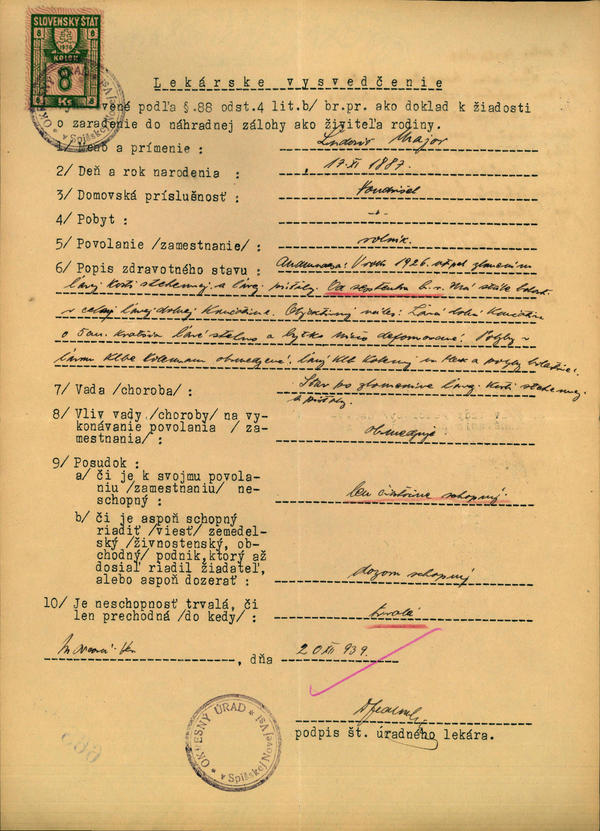 SLOVENSKÝ ŠTÁT
KOLOK
8
Ks
Lekárske vysvedčenie
vené podľa §.88 odst.4 lit.b/ br.pr. ako doklad k žiadosti
o zaradenie do náhradnej zálohy ako živiteľa rodiny.
1/ Meno a prímenie : Ľudovít Major
2/ Deň a rok narodenia : 17.XI 1887
3/ Domovská príslušnosť :
4/ Pobyt : -"-
5/ Povolanie /zamestnanie/ : rolník.
6/ Popis zdravotného stavu : V roku 1926 zlomeninu
ľavej kosti stehennej a ľavej píšťaly. Od septembra b.r. má stále bolesti
v celej ľavej dolnej končatine. Objektívny nález: Ľavá dolná končatina
o 5 cm. kratšia ľavé stehno a lýtko deformované. Pohyby v
ľavom klbe kolennom obmedzené. ľavý klb kolenný a pohyby bolestivé.
7/ Vada /choroba/ : Stav po zlomenine ľavej kosti stehennej
a píšťaly.
8/ Vliv vady /choroby/ na vy-
konávanie povolania / za-
mestnania/ : obmedzuje
9/ Posudok :
a/ či je k svojmu povola-
niu /zamestnaniu/ ne-
schopný : len čiastočne schopný.
b/ či je aspoň schopný
riadiť /viesť/ zemedel-
ský /živnostenský, ob-
chodný/ podnik,ktorý až
dosiaľ riadil žiadateľ,
alebo aspoň dozerať : dozorom schopný
10/ Je neschopnosť trvalá, či
len prechodná /do kedy/ : trvalá
, dňa 20 XII 939.
podpis št. úradného lekára.
OKRESNÝ ÚRAD * v Spišskej Novej Vsi *